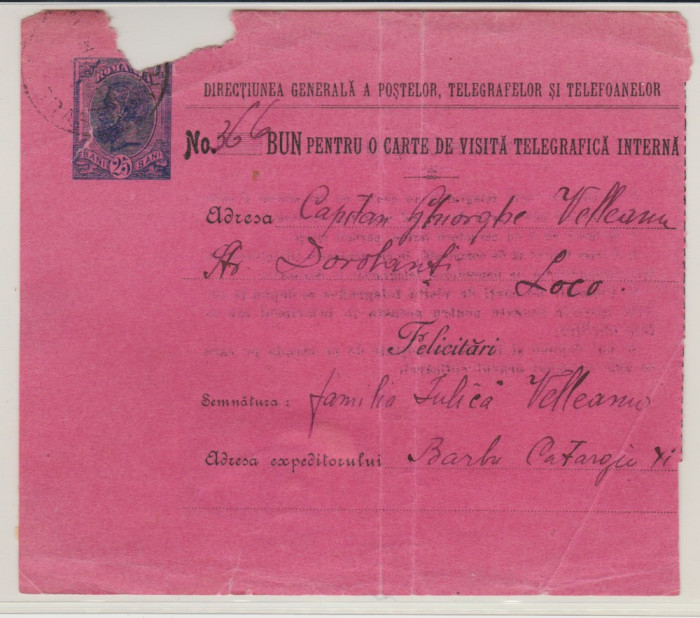 ROMANIA
BANI 25 BANI
DIRECȚIUNEA GENERALĂ A POȘTELOR, TELEGRAFELOR ȘI TELEFOANELOR
No. 366 BUN PENTRU O CARTE DE VISITĂ TELEGRAFICĂ INTERNĂ
Adresa Capitan Gheorghe Velleanu
Str. Dorobanți Loco.
Felicitări
Semnătura: familia Iulică Velleanu
Adresa expeditorului Barbu Catargiu